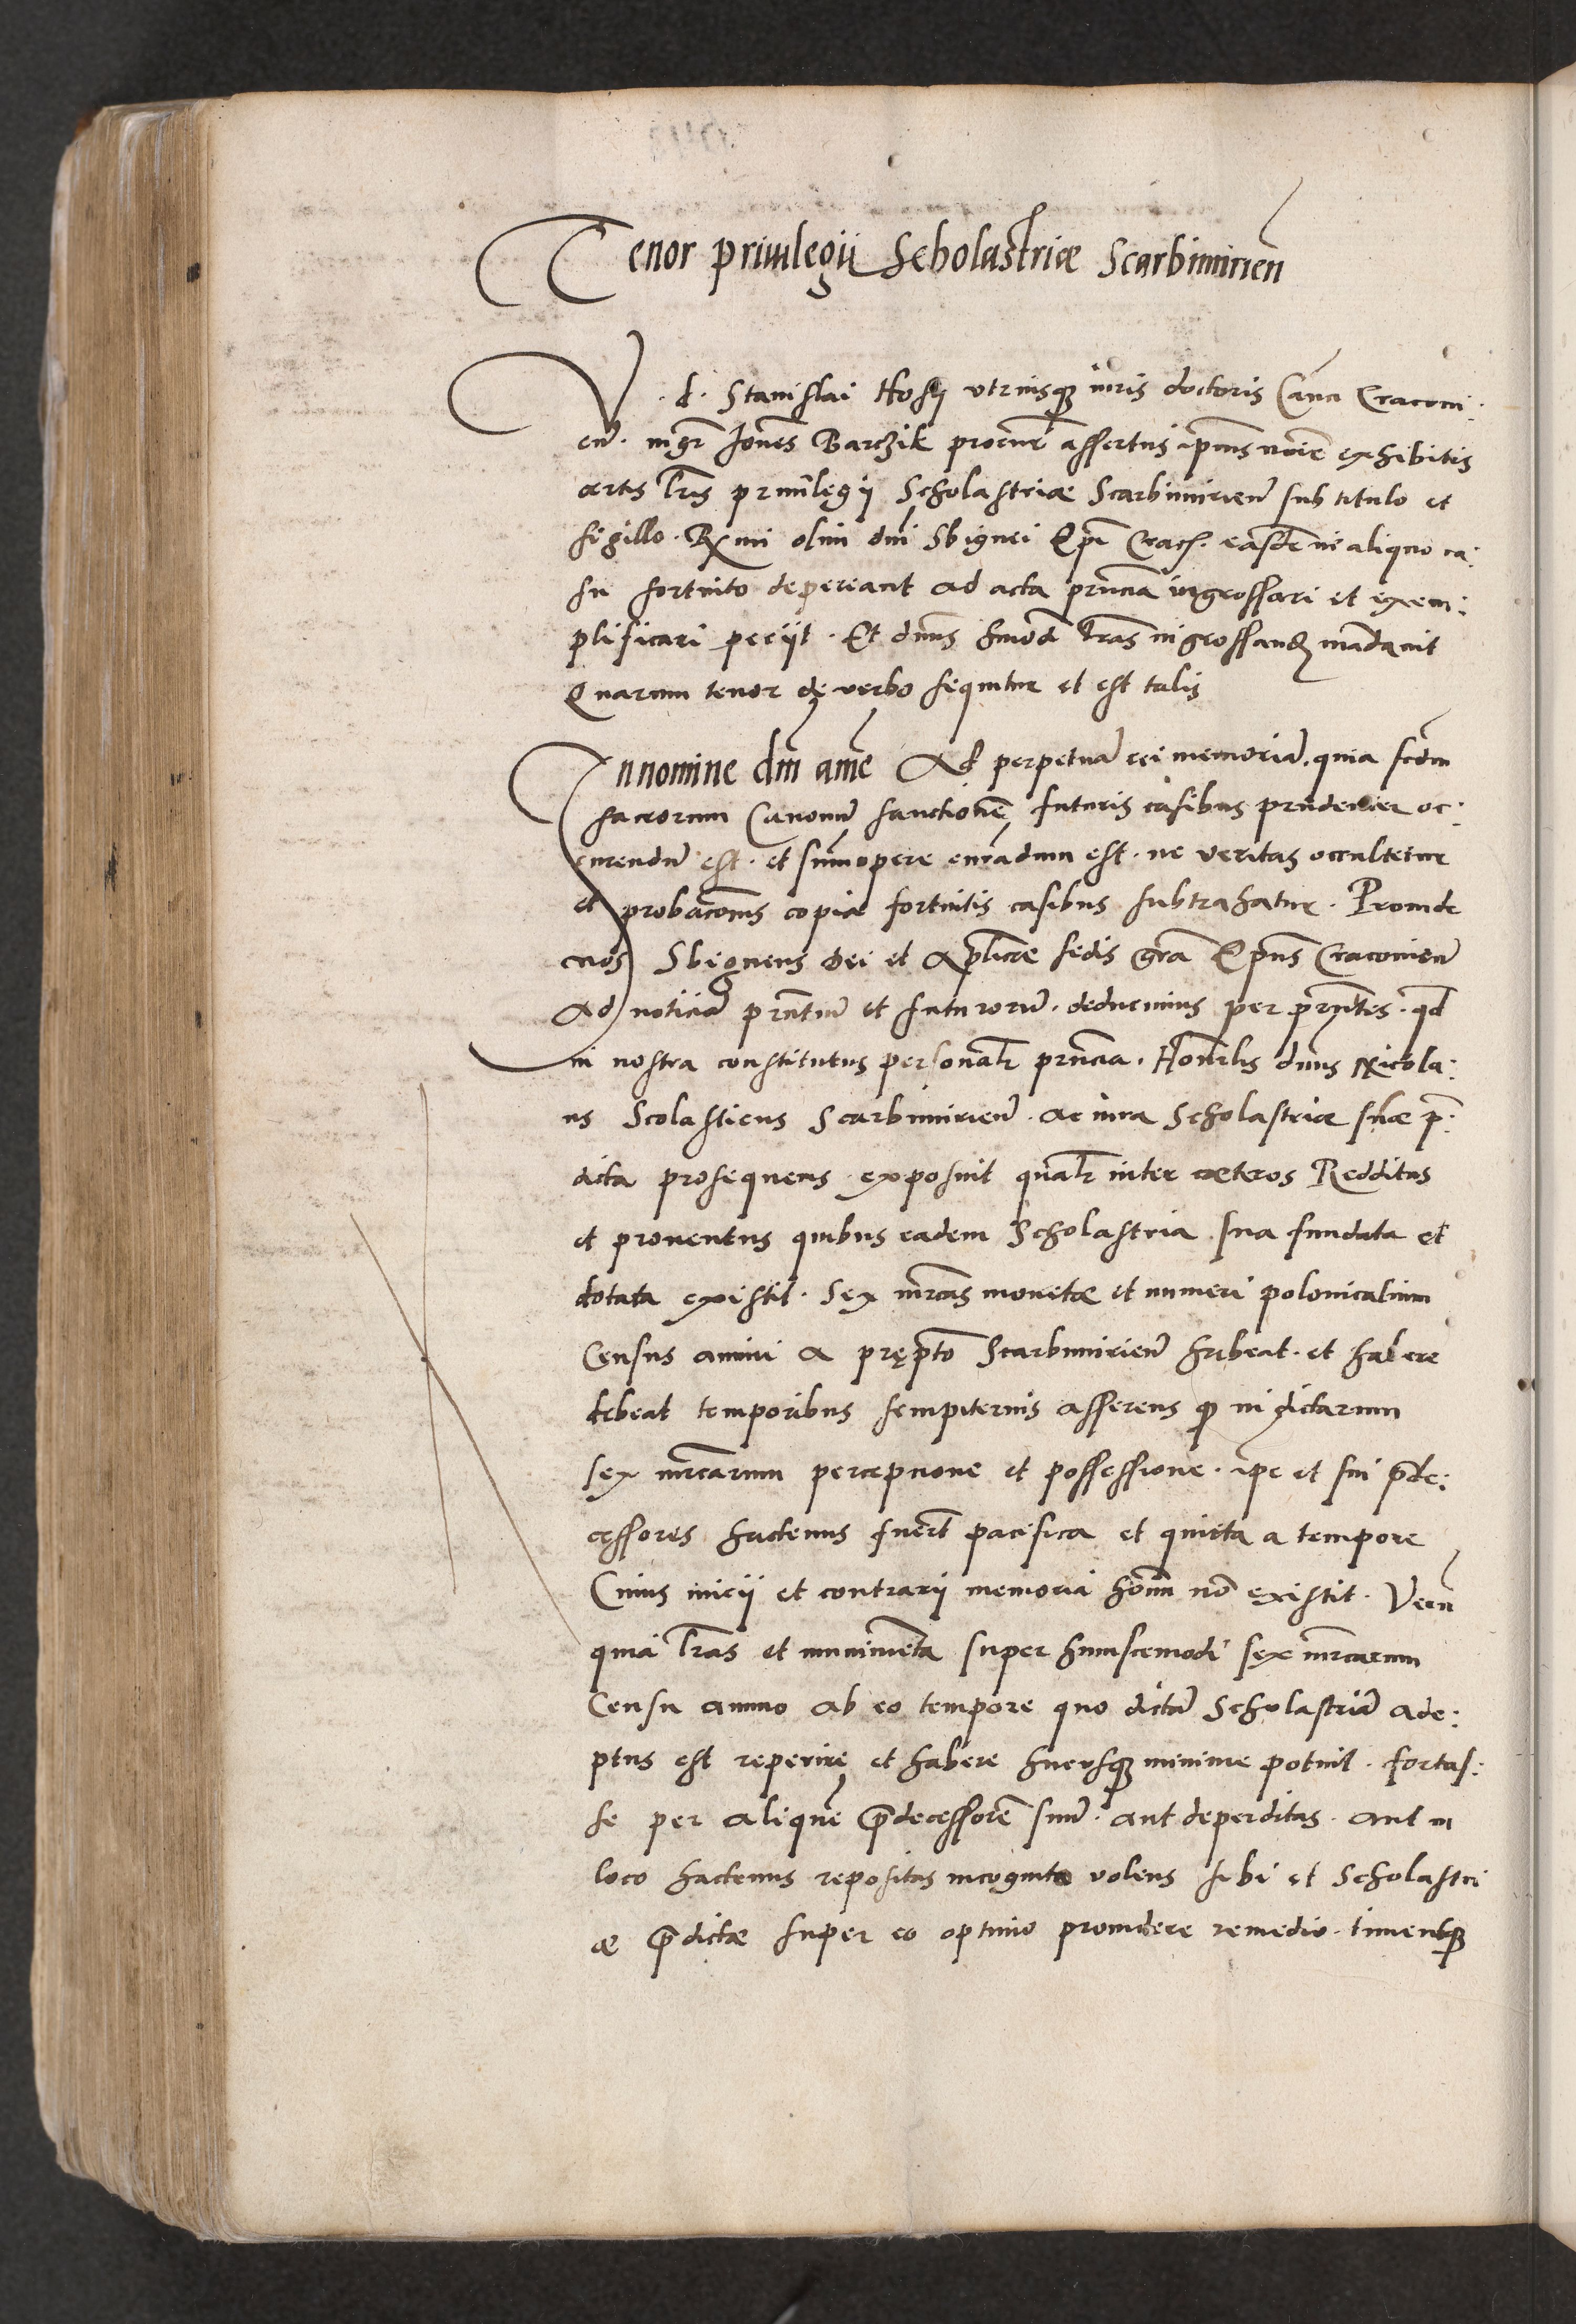 Tenor priuilegii Scholastriæ Scarbimirieñ
V. d. Stanislai Hosij vtriusq̃ iuris doctoris Can̄ci Cracoui:
eñ. mgr̄ Ioñes Barczik procur̄ assertus ip̄ius noīe exhibitis
certis l̄ris priuilęgij Scholastriæ Scarbimirieñ sub titulo et
sigillo. R̄mi olim dn̄i Sbignei Ep̄i Crac̄. easdē ne aliquo ca:
su fortuito depereant ad acta pr̄ncia ingrossari et exem:
plificari peciit. Et dn̄us hm̄oi l̄ras ingrossand̄ mādauit
Quarum tenor de verbo sequitur et est talis
In nomine dn̄i amē Ad perpetuā rei memoriā. quia scd̄m
sacrorum Canonū sanctionē futuris casibus prudenter oc:
currendū est. et sum̄opere curādum est. ne veritas occultetur
et probac̄onis copia fortuitis casibus subtrahatur. Proinde
nos Sbigneus dei et Ap̄licæ sedis gr̄a Ep̄us Cracouieñ
Ad noticiā pr̄ntiū et futurorū. deducimus per pr̄ntes. qd̄
in nostra constitutus personalr̄ pr̄ncia. Honr̄lis dn̄us Nicola:
us Scolasticus Scarbimirieñ. ac iura Scholastriæ suæ p̄:
dicta prosequens. exposuit qualr̄ inter cæteros Redditus
et prouentus quibus eadem Scholastria sua fundata et
dotata existit. Sex mr̄cas monetæ et numeri polonicalium
Census annui a pręp̄to Scarbimirieñ habeat. et habere
debeat temporibus sempiternis asserens q̄ in dictarum
sex mr̄carum percepcione et possessione. ip̄e et sui p̄de:
cessores hactenus fuer̄t pacifica et quieta a tempore
Cuius inicii et contrarij memoria hoīm nō existit. Verū
quia l̄ras et munimēta super huiuscemodi sex mr̄carum
Censu annuo ab eo tempore quo dictā Scholastriā ade:
ptus est reperire et habere hucusq̃ minime potuit. fortas:
se per aliquē p̄decessorē suū. aut deperditas. aut in
loco hactenus repositas incognito volens sibi et Scholastri
æ p̄dictæ super eo optimo prouidere remedio. timensq̃